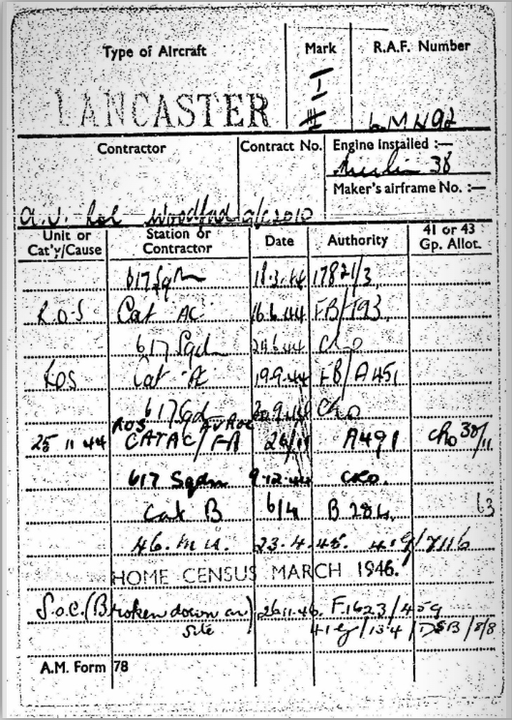 Type of Aircraft Mark R.A.F. Number
LANCASTER I LM492
Contractor Contract No. Engine installed :— Merlin 38
Maker's airframe No. :—
A.V. Roe Woodford 2010
Unit or Cat'y/Cause Station or Contractor Date Authority 41 or 43 Gp. Allot.
617 Sqdn 18.3.44 17821/3
R.O.S Cat AC 16.6.44 FB/193
617 Sqdn 24.6.44 CRO
ROS Cat A 19.9.44 FB/A451
617 Sqd CRO
ROS AVROE
25 11 44 CATAC/FA A491 CRO 30/11
617 Sqdn 9.12.44 CRO.
Cat B 6/4 B 286 13
46. M.U. 23.4.45. 41.G/7116
HOME CENSUS MARCH 1946.
S.O.C. (Broken down on 26.11.46. F.1623/459
site) 41 G/134/DSB/8/8
A.M. Form 78